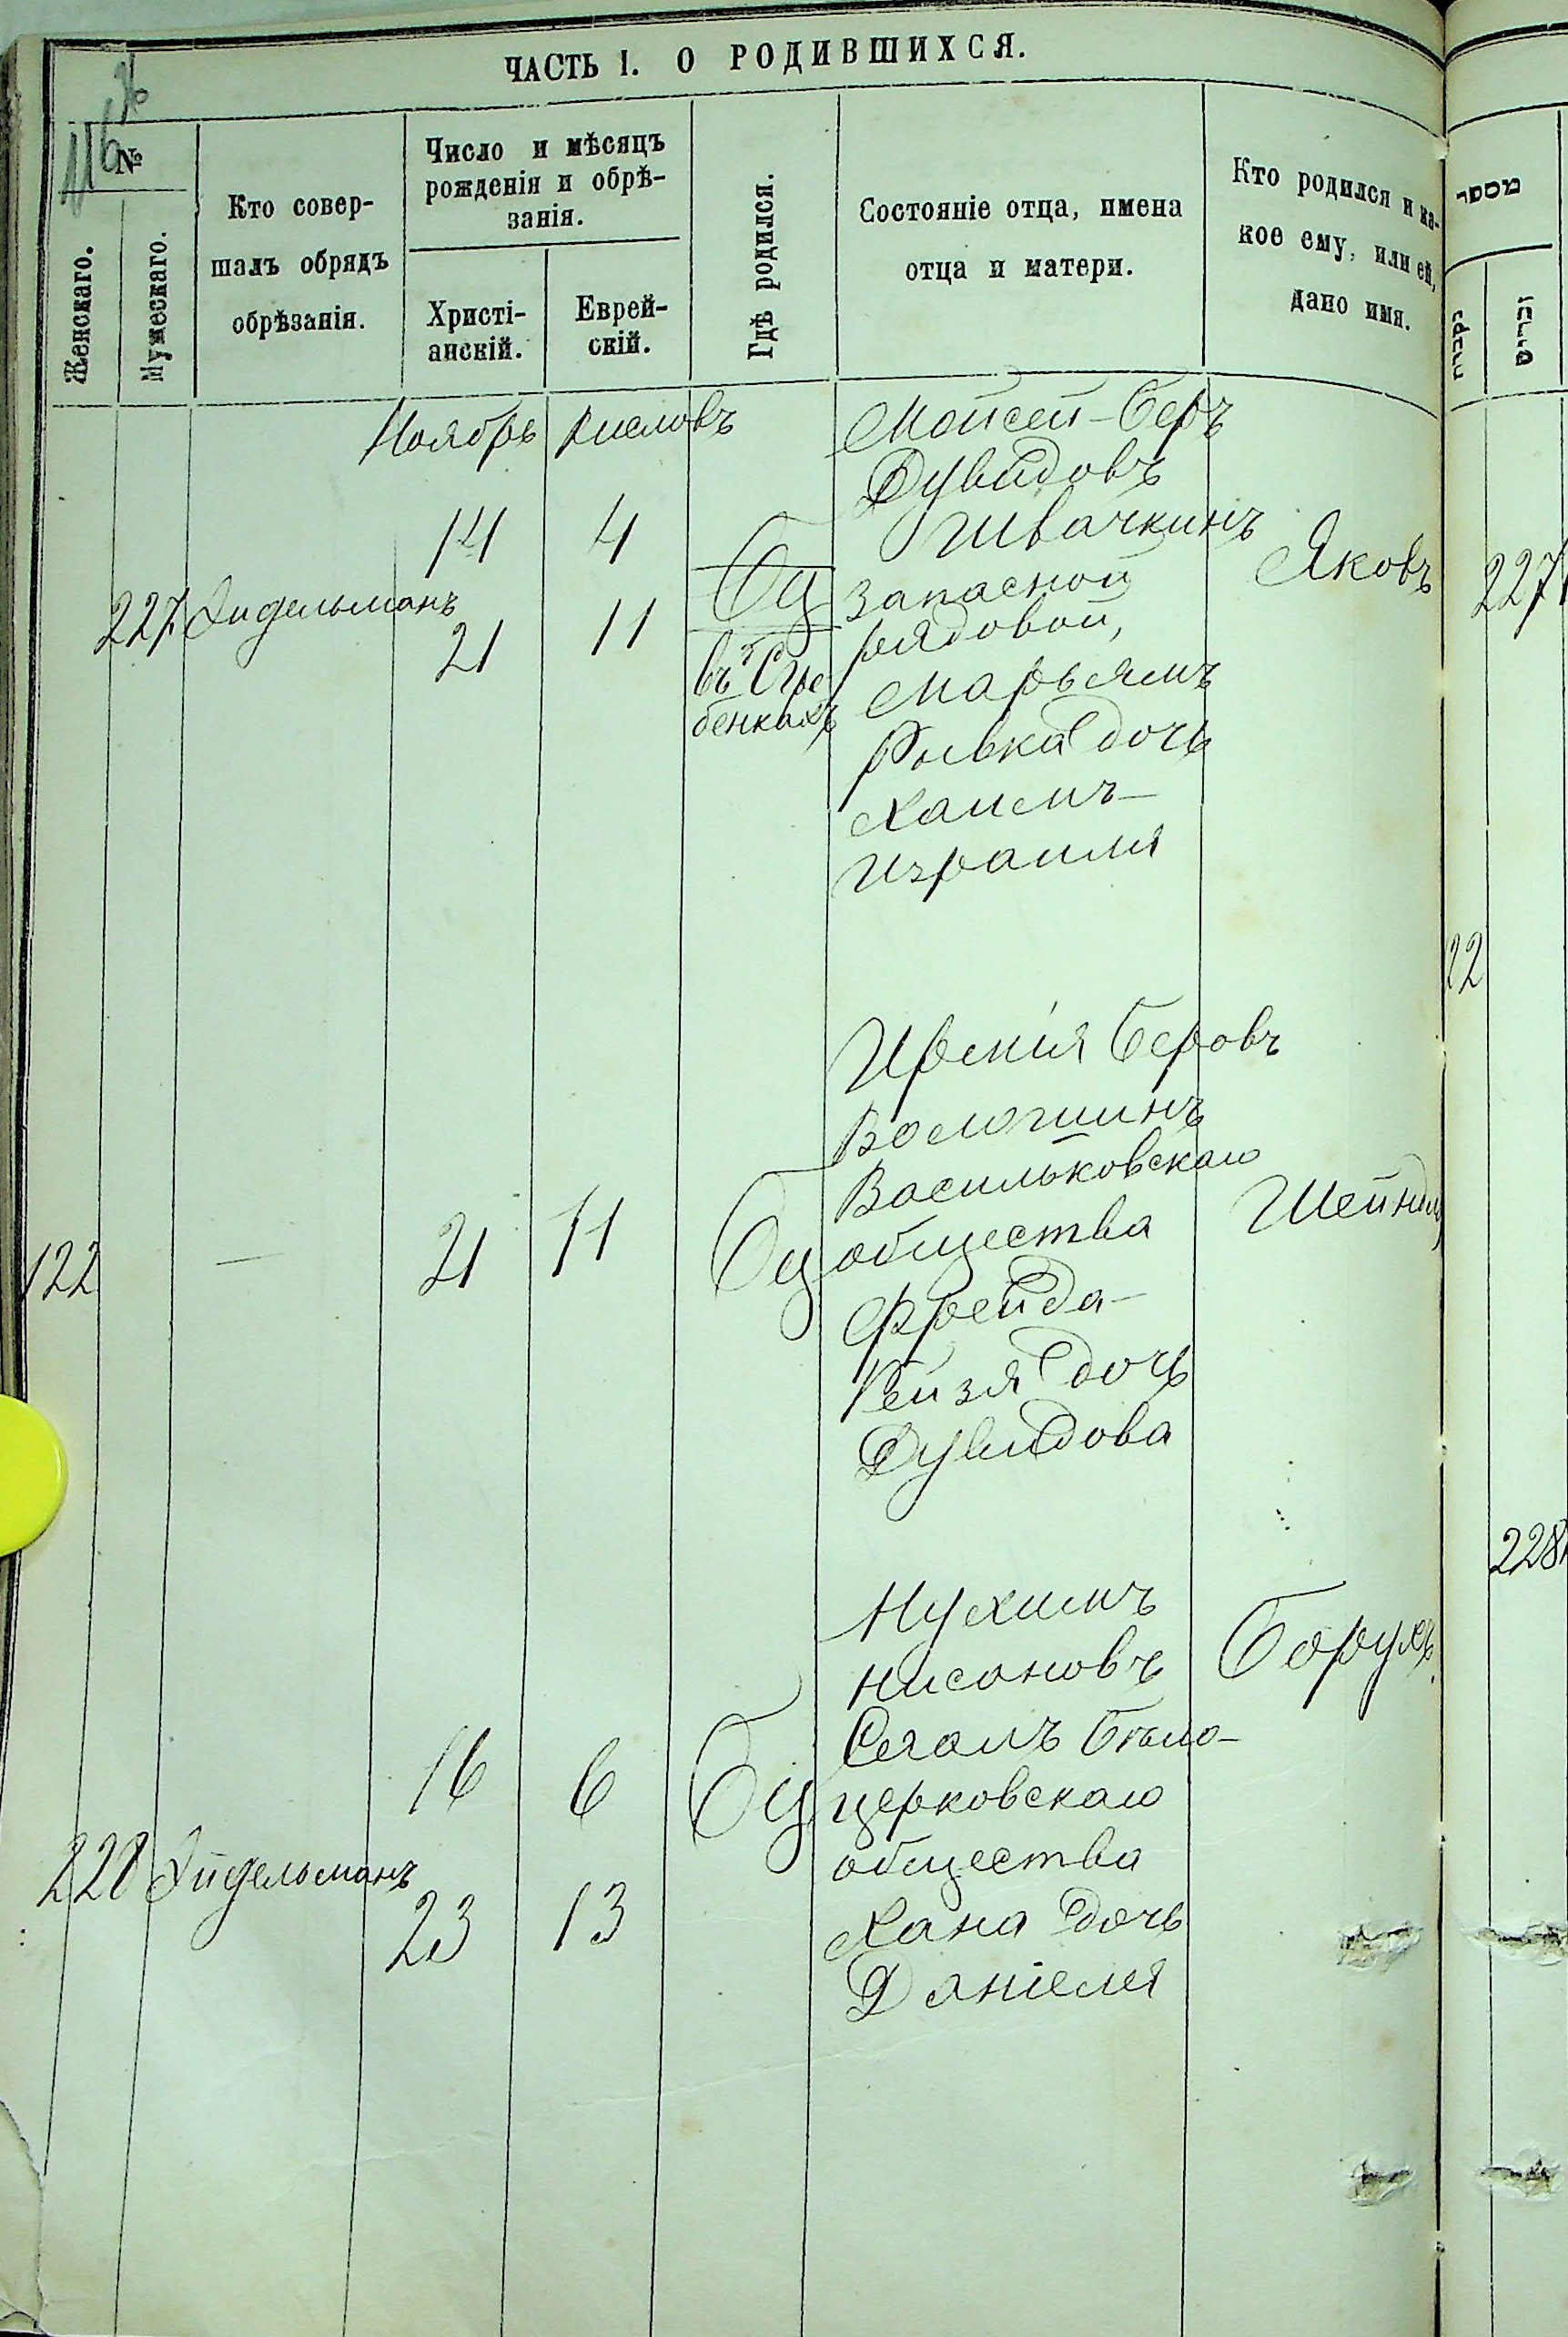 ЧАСТЬ I. О РОДИВШИХСЯ.
№
Женскаго.
Мужескаго.
Кто совер-
шалъ обрядъ
обрѣзанія.
Число и мѣсяцъ
рожденія и обрѣ-
занія.
Христі-
анскій.
Еврей-
скій.
Гдѣ родился.
Состояніе отца, имена
отца и матери.
Кто родился и ка-
кое ему, или ей,
дано имя.
מספר
נקבות
זכרים
Ноябрь Кисловъ
227 Эидельманъ
14 4
21 11
Бц
въ Гре
бенкахъ
Мойсей-Беръ
Дувидовъ
Швачкинъ
запасной
рядовой,
Марьямъ
Рывка дочь
Хаимъ-
Израиля
Яковъ
227
122 —
21 11
Бц
Ирмія Беровъ
Васильковскаго
общества
Фрейда-
Рейзя дочь
Дувидова
Шейндля
22
228 Эйдельманъ
16 6
23 13
Бц
Нухимъ
Нисановъ
Сегалъ Бѣло-
церковскаго
общества
Хана дочь
Даніеля
Борухъ
228